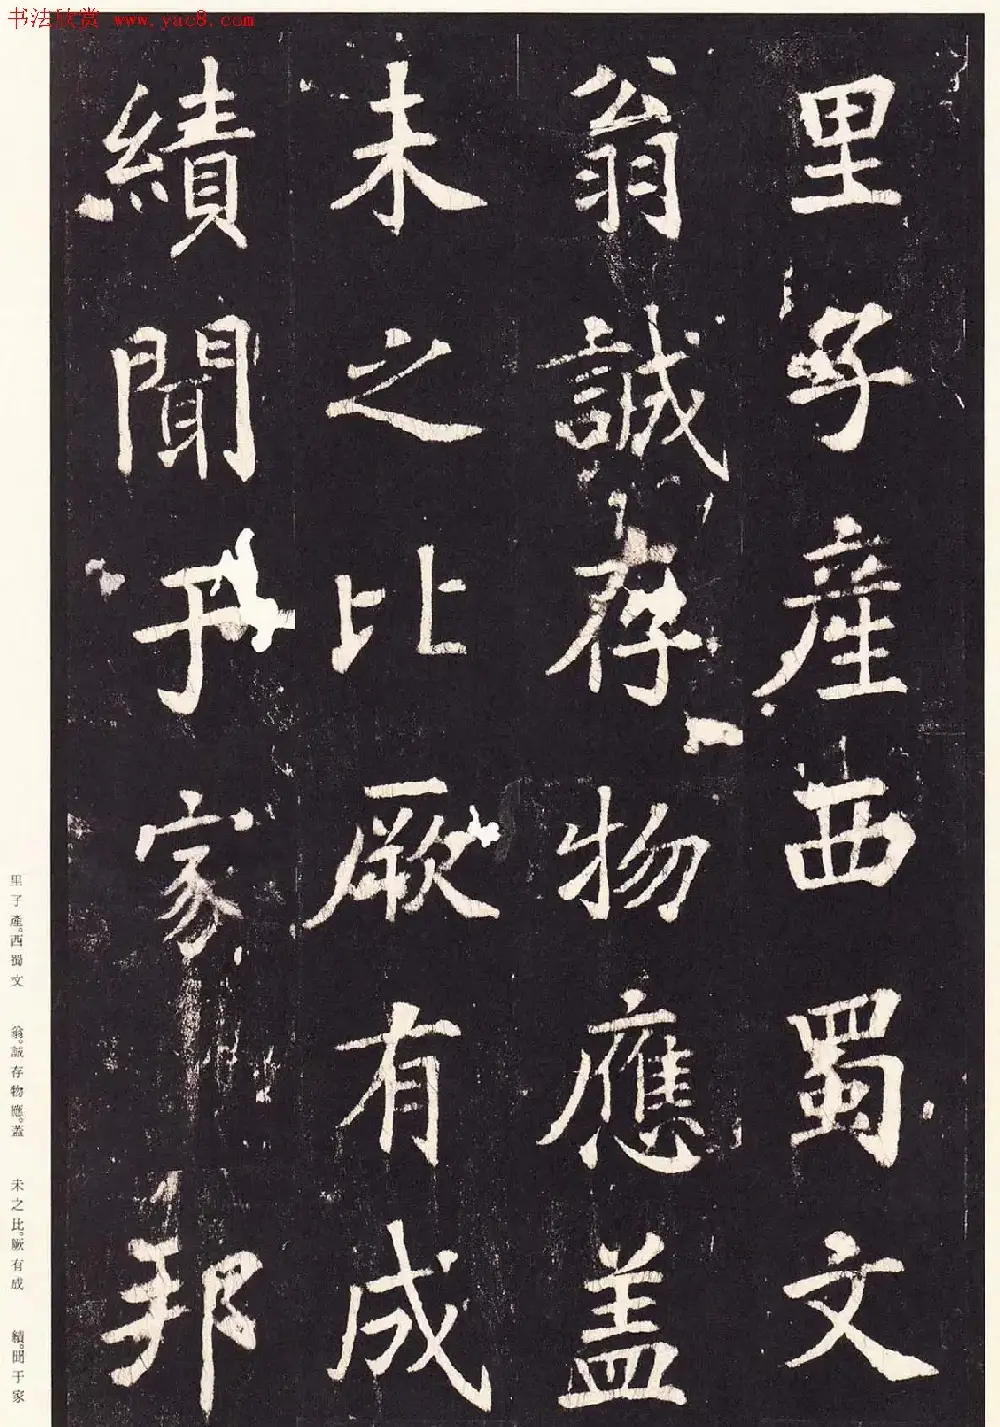 书法欣赏 www.yac8.com
里子產西蜀文
翁誠存物應蓋
未之比厥有成
績聞于家邦
里子產。西蜀文 翁。誠存物應。蓋 未之比。厥有成 績。聞于家